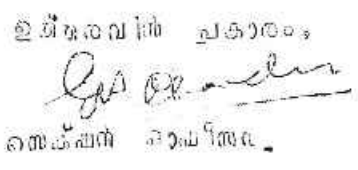 ഉത്തരവിൻ പ്രകാരം,
സെക്ഷൻ ഓഫീസർ.